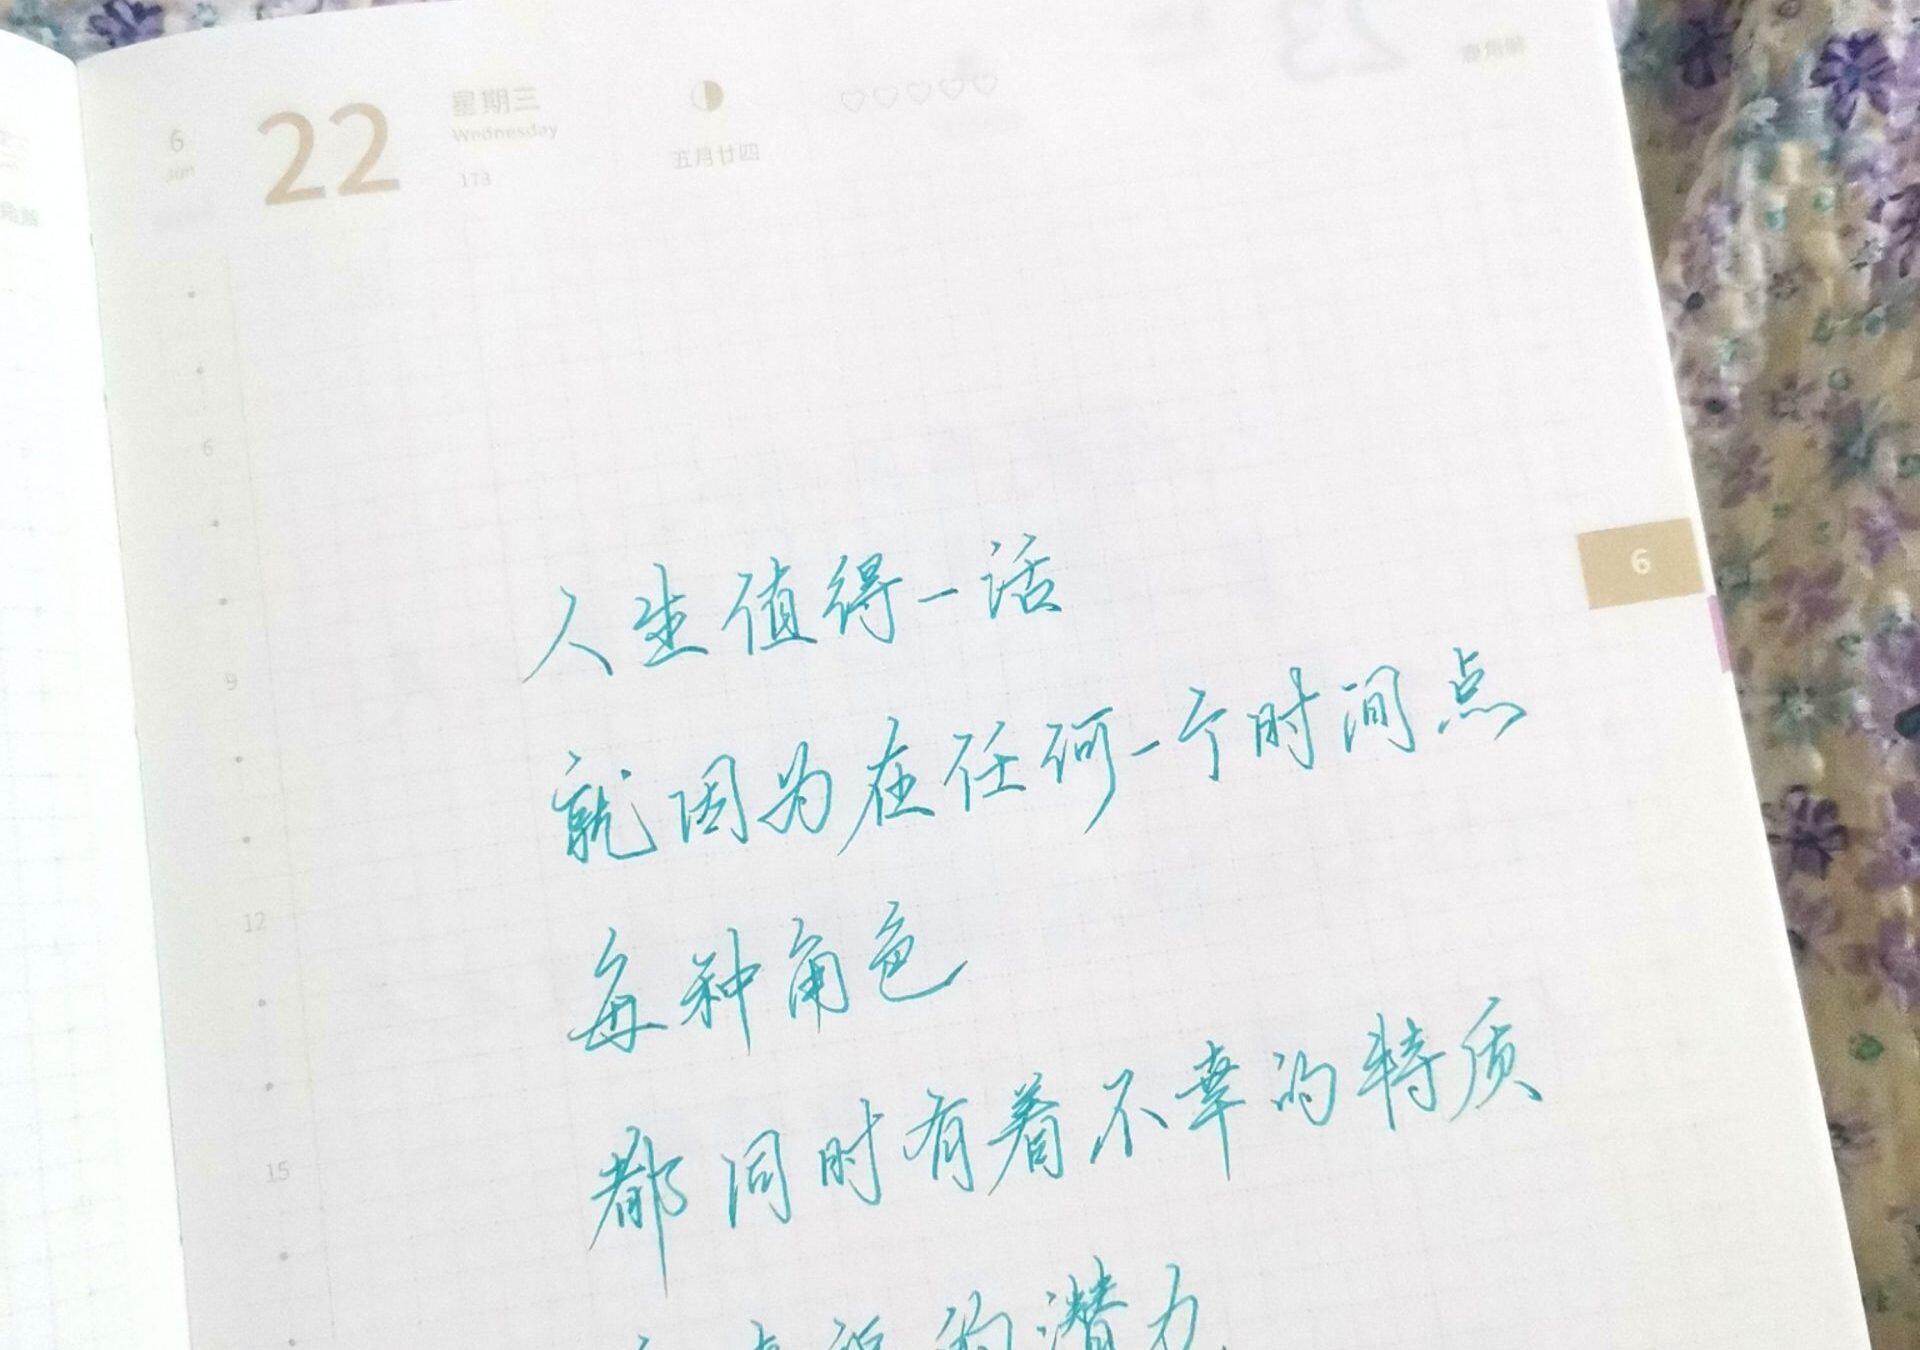 6
Jun
22
星期三
Wednesday
173
五月廿四
23
6
9
12
15
6
人生值得一活
就因为在任何一个时间点
每种角色
都同时有着不幸的特质
的潜力